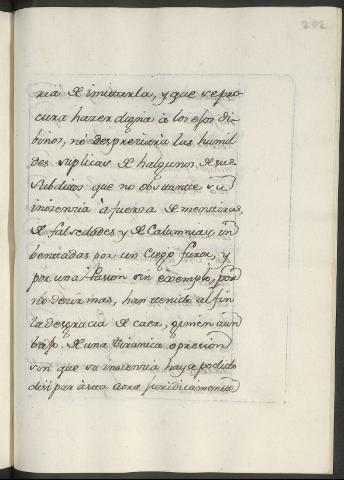 272
ria de imittarla, y que se pro-
cura hazer digna â los ojos di-
binos, no despreziarà las humil
des suplicas de halgunos de sus
subditos que no obsttantte su
inozenzia â fuerza de mentiras,
de falsedâdes y de Calumnias in
benttadas por un ciego furor, y
por una Passion sin exemplo, por
no dezir mas, han ttenido al fin
la desgracia de caer, gimen aun
baxo de una tiranica opresion
sin que su inozenzia haya podido
disipar àsta aora juridicamentte